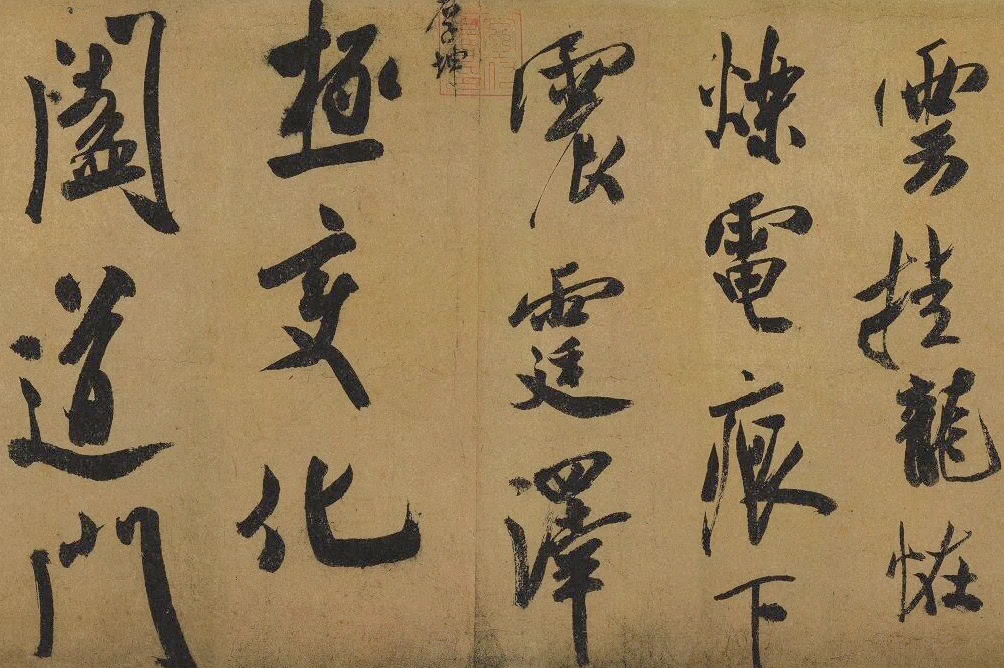 雲挂龍恠
爍電痕下
震霆澤
厚坤
極変化
闔道門